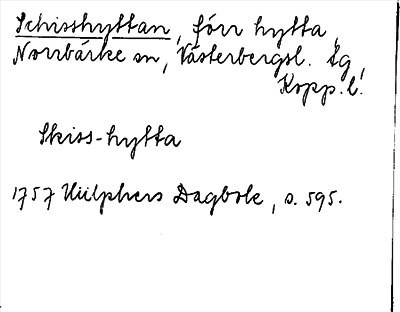 Schisshyttan, förr hytta,
Norrbärke sn, Västerbergsl. tg,
Kopp. l.
Skiss-hytta
1757 Hülphers Dagbok, s. 595.